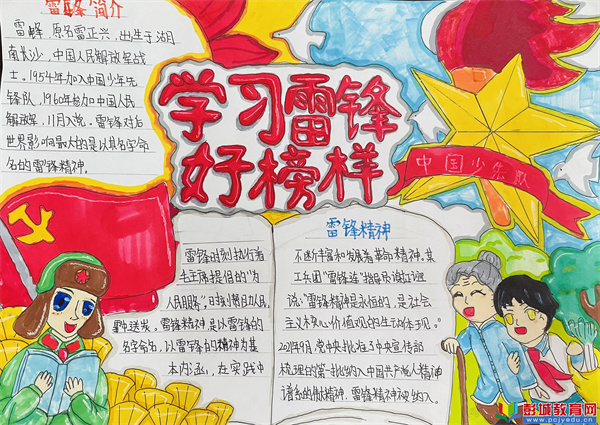 雷锋简介
雷锋,原名雷正兴,出生于湖
南长沙,中国人民解放军战
士.1954年加入中国少年先
锋队,1960年参加中国人民
解放军,11月入党。雷锋对后
世影响最大的是以其名字命
名的雷锋精神。
学习雷锋
好榜样
中国少先队
雷锋时刻执行着
毛主席提倡的"为
人民服务"
雷锋精神是以雷锋的
名字命名,以雷锋的精神为基
本内涵,在实践中
雷锋精神
不断丰富和发展着革命精神,某
工兵团"雷锋连"指导员谢
说:"雷锋精神是永恒的,是社会
主义核心价值观的生动体现"。
党中央批准了中央宣传部
梳理的第一批纳入中国共产党人精神
谱系的伟大精神,雷锋精神被纳入.
彭城教育网
www.pcjyedu.cn